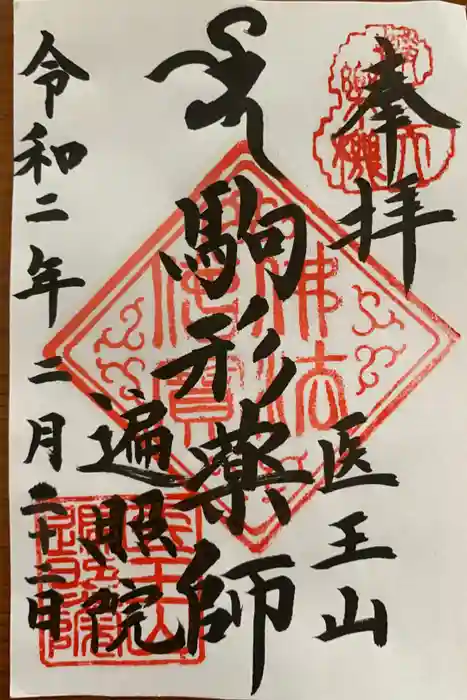 奉拝
医王山
駒形薬師
遍照院
令和二年二月二十三日
佛法
僧寳